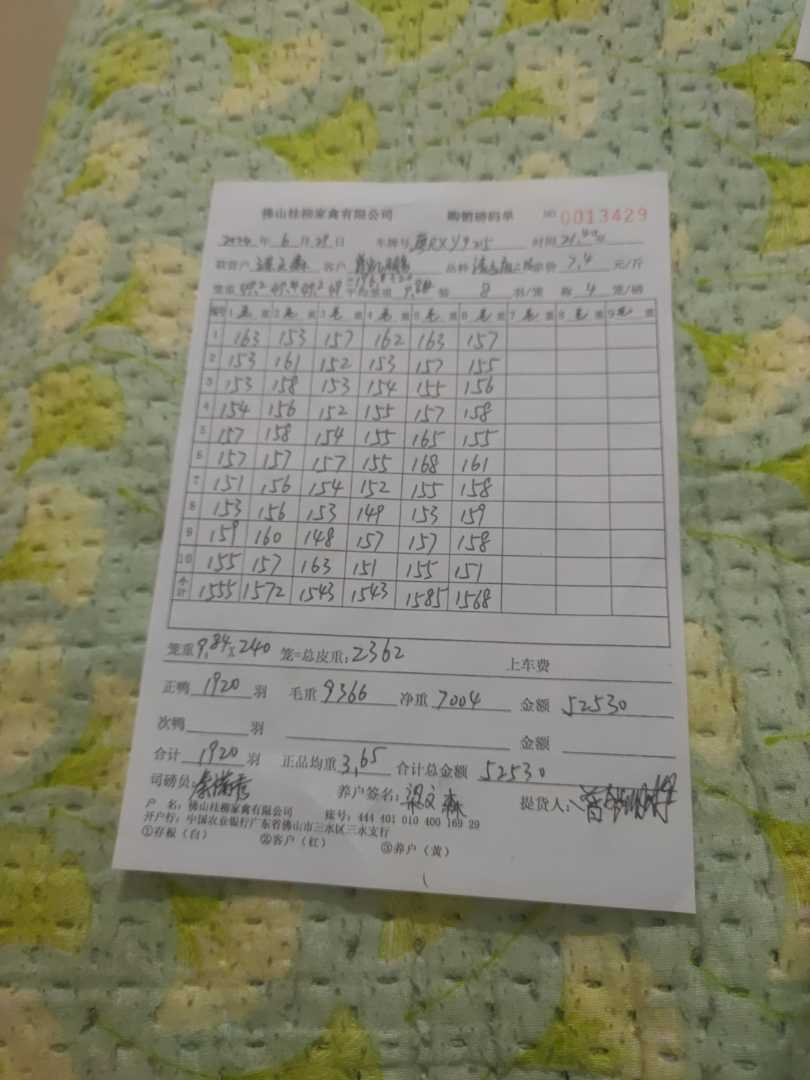 佛山桂柳家禽有限公司 购销磅码单 NO 0013429
2024 年 6 月 29 日 车牌号 时间
农管户 客户 品种 单价 7.4 元/斤
笼重 49.2 49.2 49 平均笼重 9.84 装 8 羽/笼 称 4 笼/磅
编号 1 毛 重 2 毛 重 3 毛 重 4 毛 重 5 毛 重 6 毛 重 7 毛 重 8 毛 重 9 毛 重
1 163 153 157 162 163 157
2 153 161 152 153 157 155
3 153 158 153 154 155 156
4 154 156 152 155 157 158
5 157 158 154 155 165 155
6 157 157 157 155 168 161
7 151 156 154 152 155 158
8 153 156 153 149 153 159
9 159 160 148 157 157 158
10 155 157 163 151 155 151
小计 1555 1572 1543 1543 1585 1568
笼重 9.84 x 240 笼=总皮重: 2362 上车费
正鸭 1920 羽 毛重 9366 净重 7004 金额 52530
次鸭 羽 金额
合计 1920 羽 正品均重 3.65 合计总金额 52530
司磅员: 养户签名: 梁文森 提货人:
户 名: 佛山桂柳家禽有限公司 账号: 444 401 010 400 169 29
开户行: 中国农业银行广东省佛山市三水区三水支行
①存根(白) ②客户(红) ③养户(黄)